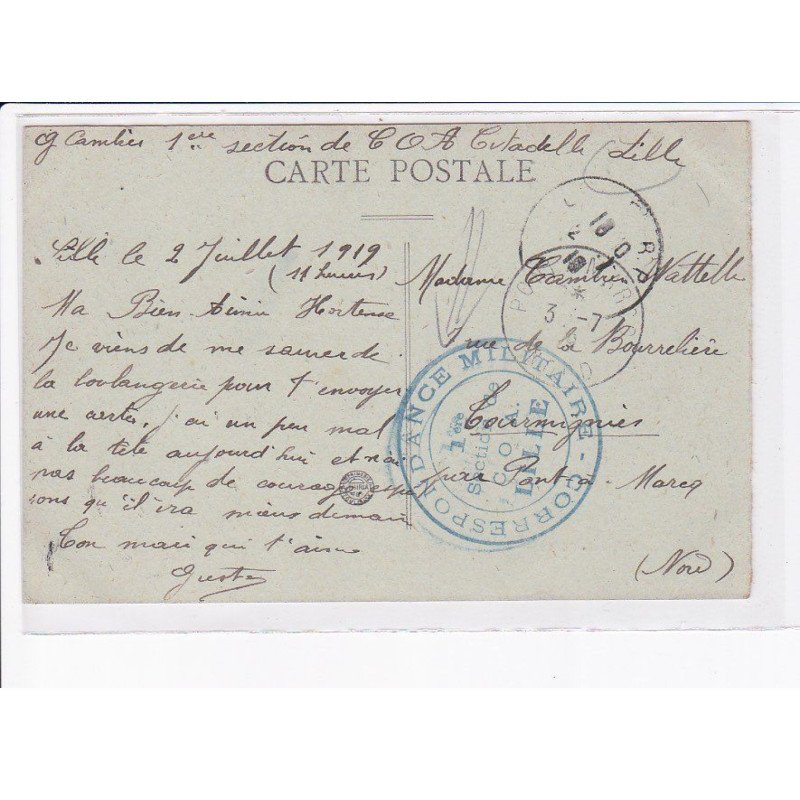 G Cambier 1ère section de C O A Citadelle Lille
CARTE POSTALE
Lille le 2 Juillet 1919
(11 heures)
Ma Bien Aimée Hortense
Je viens de me sauver de
la boulangerie pour t'envoyer
une carte, j'ai un peu mal
à la tête aujourd'hui et n'ai
pas beaucoup de courage espé
rons qu'il ira mieux demain
Ton mari qui t'aime
Madame Cambier Wattelle
rue de la Bourrelière
Tourmignies
par Pont-a-Marcq
(Nord)
CORRESPONDANCE MILITAIRE
1ère
Section de
C. O. A.
LILLE
3 -7